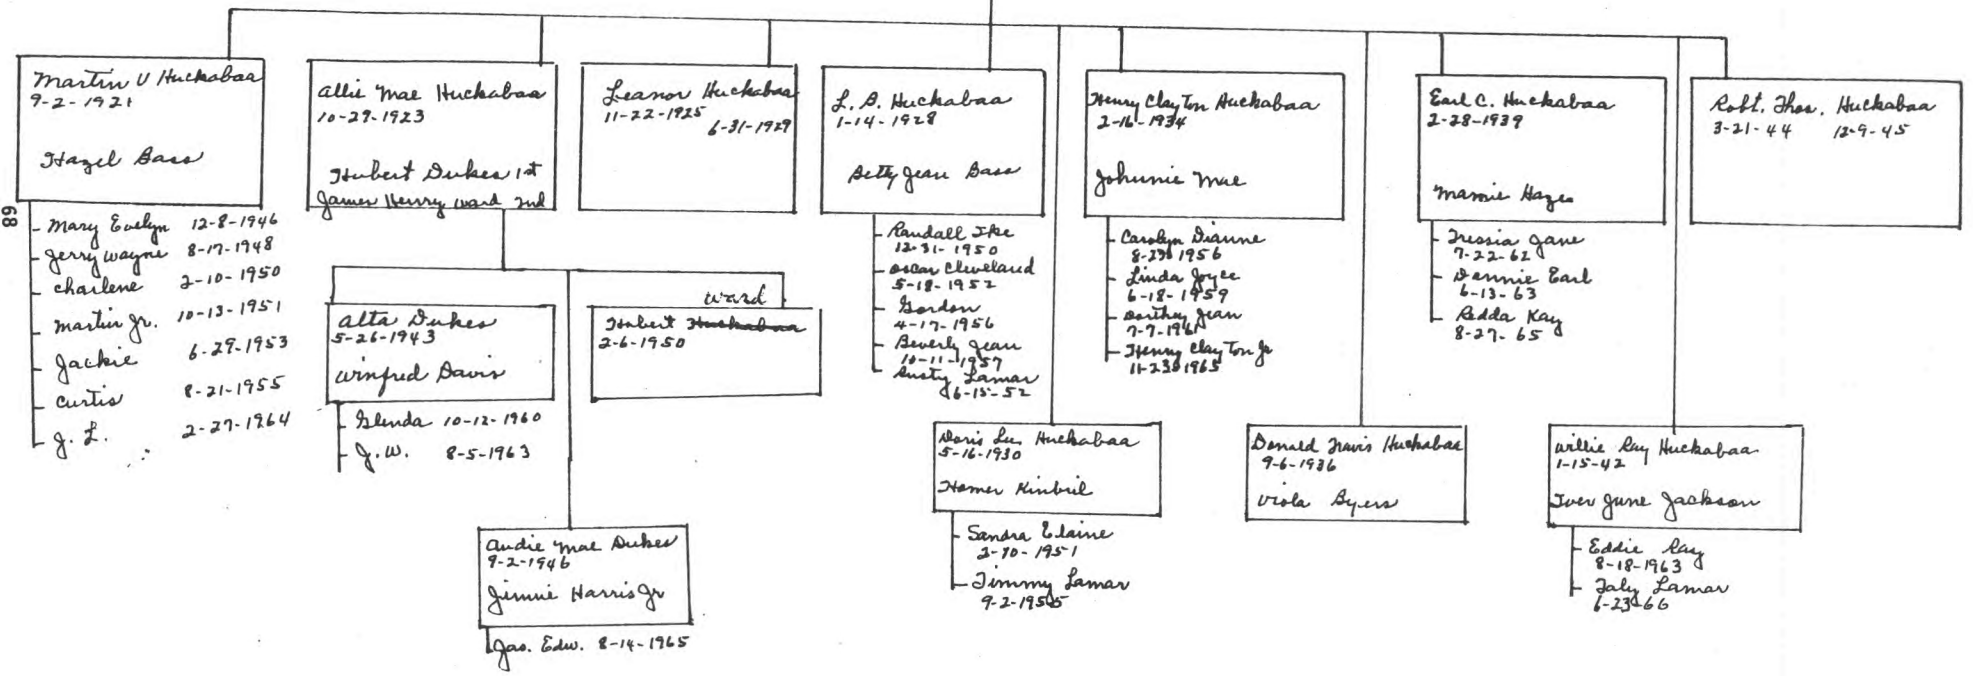 Martin V Huckabaa
9-2-1921
Hazel Bass
Mary Evelyn 12-8-1946
Jerry Wayne 8-17-1948
Charlene 2-10-1950
Martin Jr. 10-13-1951
Jackie 6-29-1953
Curtis 8-21-1955
J. L. 2-27-1964
89
Allie Mae Huckabaa
10-29-1923
Hubert Dukes 1st
James Henry Ward 2nd
Alta Dukes
5-26-1943
Winfred Davis
Glenda 10-12-1960
J. W. 8-5-1963
Ward
Hubert Huckabaa
2-6-1950
Audie Mae Dukes
9-2-1946
Jimmie Harris Jr
Jas. Edw. 8-14-1965
Leanor Huckabaa
11-22-1925
6-31-1929
L. B. Huckabaa
1-14-1928
Betty Jean Bass
Randall Ike
12-31-1950
Oscar Cleveland
5-18-1952
Gordon
4-17-1956
Beverly Jean
10-11-1957
Rusty Lamar
6-15-52
Doris Lu. Huckabaa
5-16-1930
Homer Kinbril
Sandra Elaine
2-10-1951
Timmy Lamar
9-2-1955
Henry Clayton Huckabaa
2-16-1934
Johnnie Mae
Carolyn Dianne
8-23-1956
Linda Joyce
6-18-1959
Dorthey Jean
7-7-1961
Henry Clayton Jr
11-23-1965
Donald Travis Huckabaa
9-6-1936
Viola Byers
Earl C. Huckabaa
2-28-1939
Mamie Hayes
Tressia Jane
7-22-62
Dannie Earl
6-13-63
Redda Kay
8-27-65
Willie Ray Huckabaa
1-15-42
Iver June Jackson
Eddie Ray
8-18-1963
Lamar
6-23-66
Robt. Thos. Huckabaa
3-21-44 12-9-45